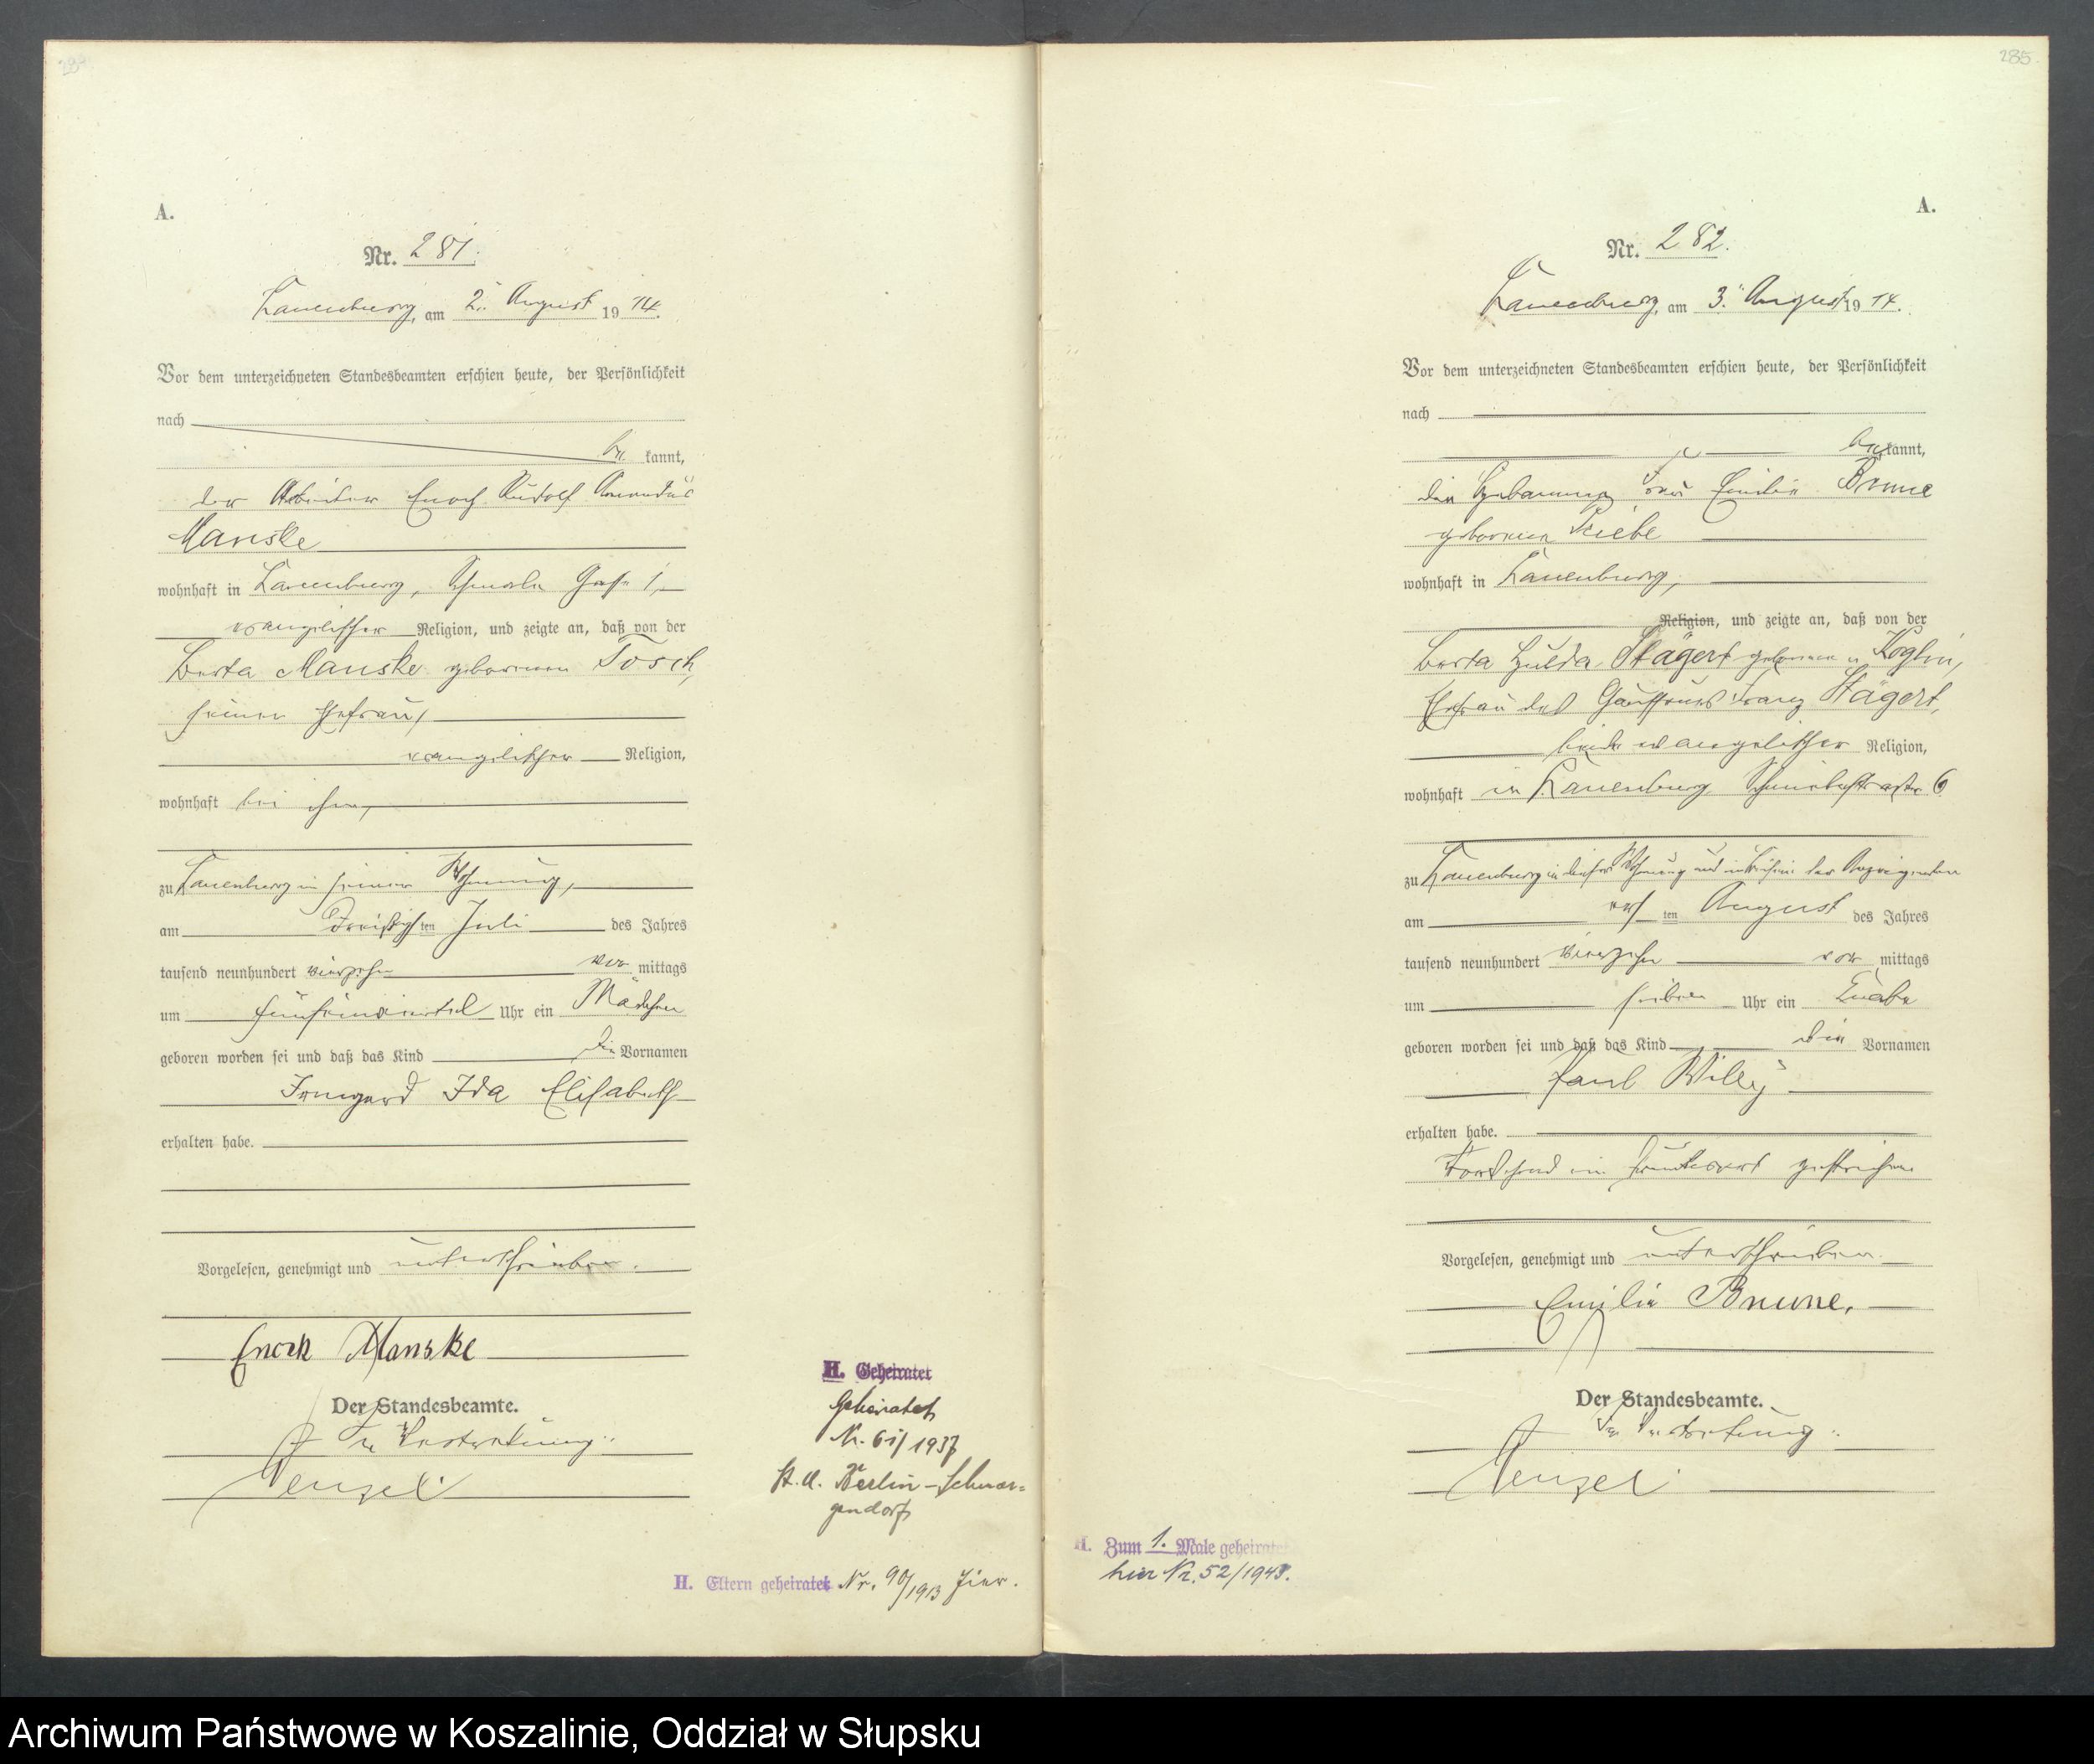 284.
A.
Nr. 281.
Lauenburg, am 2. August 1914.
Vor dem unterzeichneten Standesbeamten erschien heute, der Persönlichkeit
nach
be kannt,
der Arbeiter Enoch Rudolf Amandus
Manske
wohnhaft in Lauenburg, Schmale Gasse 1,
evangelischer Religion, und zeigte an, daß von der
Berta Manske geborenen Tosch,
seiner Ehefrau,
evangelischer Religion,
wohnhaft bei ihm,
zu Lauenburg in seiner Wohnung,
am Dreißigsten Juli des Jahres
tausend neunhundert vierzehn vor mittags
um fünfeinviertel Uhr ein Mädchen
geboren worden sei und daß das Kind die Vornamen
Irmgard Ida Elisabeth
erhalten habe.
Vorgelesen, genehmigt und unterschrieben.
Enoch Manske
Der Standesbeamte.
In Vertretung:
Wenzel
H. Geheiratet
Geheiratet
Nr. 61/1937
St. A. Berlin-Schmar-
gendorf
H. Eltern geheiratet Nr. 90/1913 hier.
285.
A.
Nr. 282.
Lauenburg, am 3. August 1914.
Vor dem unterzeichneten Standesbeamten erschien heute, der Persönlichkeit
nach
be kannt,
die Hebamme Frau Emilie Brune
geborene Priebe
wohnhaft in Lauenburg,
Religion, und zeigte an, daß von der
Berta Hulda Stägert geborenen Koglin,
Ehefrau des Franz Stägert,
beide evangelischer Religion,
wohnhaft in Lauenburg 6
zu Lauenburg in dieser Wohnung und in Beisein der Anzeigenden
am ersten August des Jahres
tausend neunhundert vierzehn vor mittags
um sieben Uhr ein Knabe
geboren worden sei und daß das Kind die Vornamen
Paul Willy
erhalten habe.
Vorstehend ein Druckwort gestrichen
Vorgelesen, genehmigt und unterschrieben.
Emilie Brune.
Der Standesbeamte.
In Vertretung:
Wenzel
H. Zum 1. Male geheiratet
hier Nr. 52/1943.
Archiwum Państwowe w Koszalinie, Oddział w Słupsku